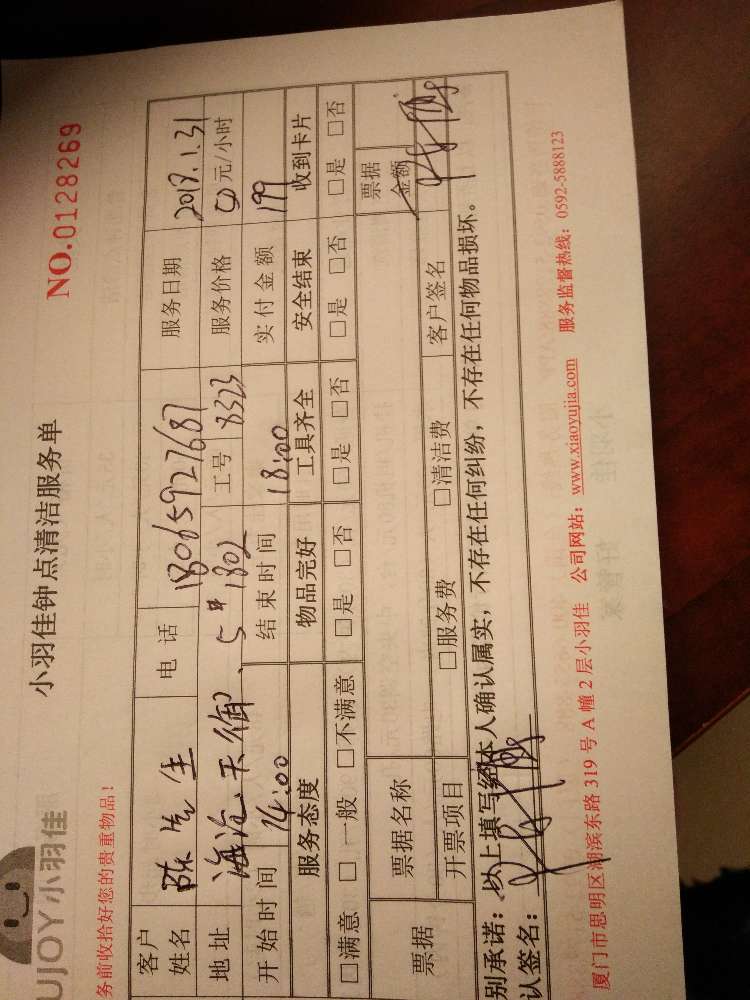 UJOY小羽佳
小羽佳钟点清洁服务单
NO.0128269
务前收拾好您的贵重物品!
客户姓名 陈先生 电话 18065927687 服务日期 2018.1.31
地址 海沧.天御、5# 1802 工号 8323 服务价格 50元/小时
开始时间 14:00 结束时间 18:00 实付金额 199
服务态度 物品完好 工具齐全 安全结束 收到卡片
□满意 □一般 □不满意 □是 □否 □是 □否 □是 □否 □是 □否
票据 票据名称 票据金额
开票项目 □服务费 □清洁费 客户签名
别承诺:以上填写经本人确认属实,不存在任何纠纷,不存在任何物品损坏。
认签名:
厦门市思明区湖滨东路 319 号 A 幢 2 层小羽佳 公司网站:www.xiaoyujia.com 服务监督热线:0592-5888123